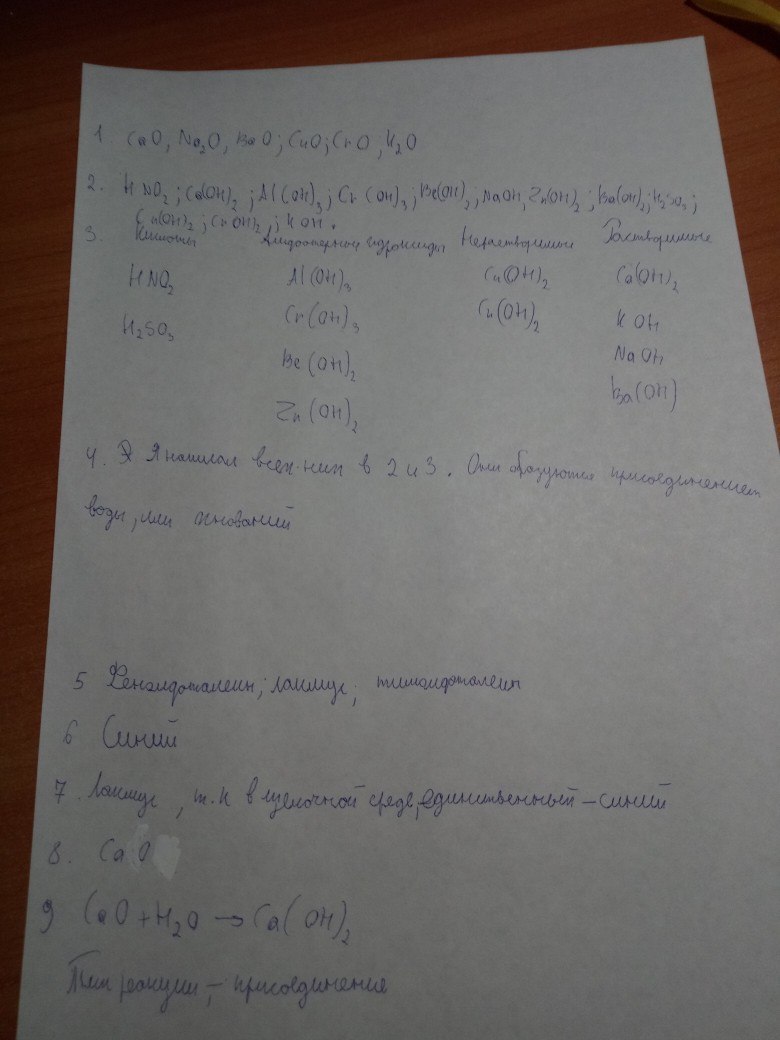 1. CaO, Na₂O, BaO; CuO; CrO; K₂O
2. HNO₂; Ca(OH)₂; Al(OH)₃; Cr(OH)₃; Be(OH)₂; NaOH, Zn(OH)₂; Ba(OH)₂; H₂SO₃;
Cu(OH)₂; Cr(OH)₂; KOH.
3. Кислоты Амфотерные гидроксиды Нерастворимые Растворимые
HNO₂ Al(OH)₃ Cu(OH)₂ Ca(OH)₂
H₂SO₃ Cr(OH)₃ Cr(OH)₂ KOH
Be(OH)₂ NaOH
Zn(OH)₂ Ba(OH)
4. Я написал всех них в 2 и 3. Они образуются присоединением
воды, или оснований
5 Фенолфталеин; лакмус; тимолфталеин
6 Синий
7. Лакмус, т.к в щелочной среде, единственный – синий
8. CaO
9 CaO + H₂O → Ca(OH)₂
Тип реакции – присоединение